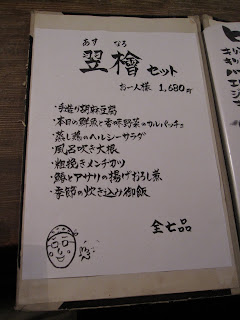 あす なろ
翌檜セット
お一人様 1,680円
・手造り胡麻豆腐
・本日の鮮魚と香味野菜のカルパッチョ
・蒸し鶏のヘルシーサラダ
・風呂吹き大根
・粗挽きメンチカツ
・鰆とアサリの揚げおろし煮
・季節の炊き込み御飯
全七品